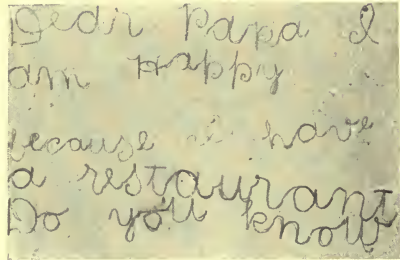 Dear Papa I
am Happy
because i have
a restaurant
Do you know